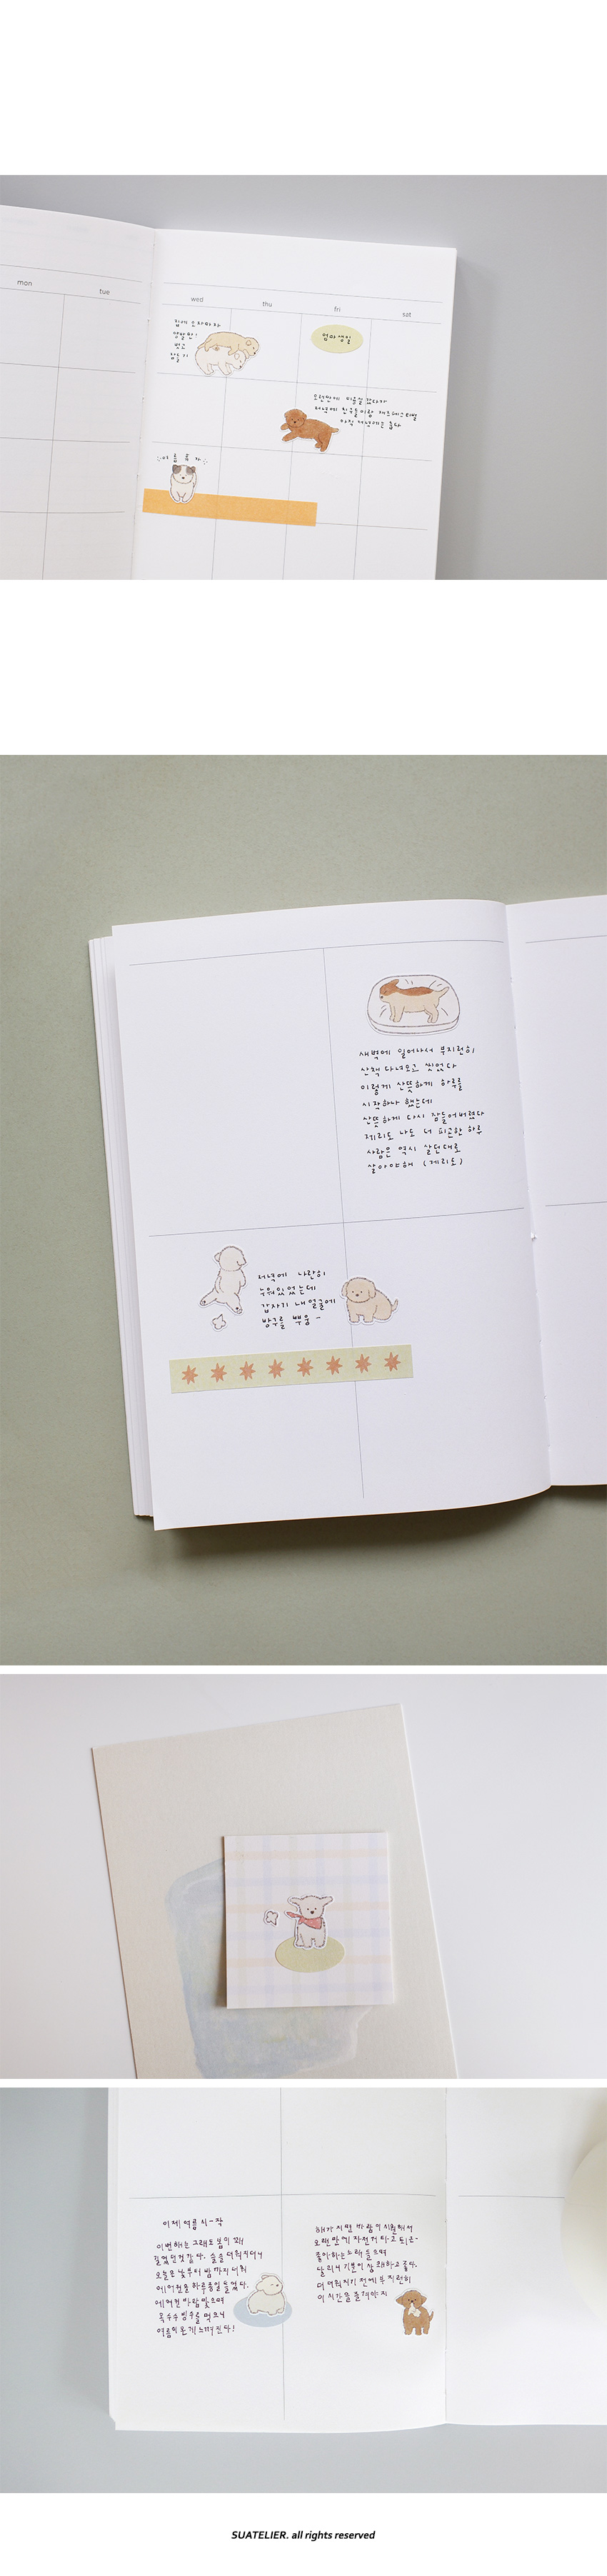 mon
tue
wed
thu
fri
sat
집에 오자마자
양말만!
벗고
잠들기
엄마생일
오랜만에 미용실 갔다가
저녁에 친구들이랑 재즈페스티벌
아직 저녁에는 춥다
새벽에 일어나서 부지런히
산책 다녀오고 씻었다
이렇게 산뜻하게 하루를
시작하나 했는데
산뜻하게 다시 잠들어버렸다
제리도 나도 더 피곤한 하루
사람은 역시 살던대로
살아야해 (제리도)
저녁에 나란히
누워있었는데
갑자기 내 얼굴에
방구를 뿌웅-
이제 여름 시-작
이번해는 그래도 봄이 꽤
길었던것 같다. 슬슬 더워지더니
오늘은 낮부터 밤까지 더워
에어컨을 하루종일 틀었다.
에어컨 바람 맞으며
옥수수 빙수를 먹으니
여름이 온게 느껴진다!
해가 지면 바람이 시원해서
오랜만에 자전거 타고 퇴근-
좋아하는 노래 들으며
달리니 기분이 상쾌하고 좋다.
더 더워지기 전에 부지런히
이 시간을 즐겨야지
SUATELIER. all rights reserved